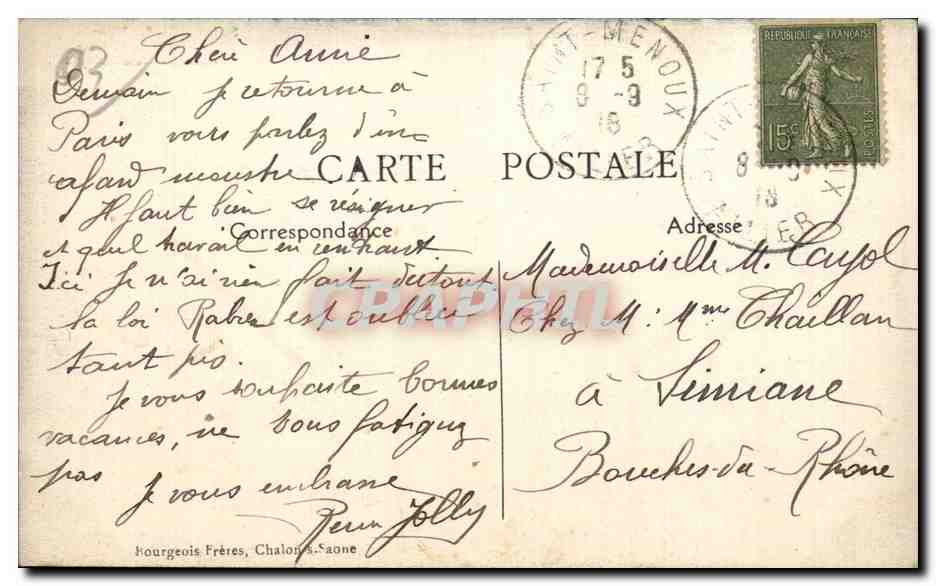 93
Chère Amie
Demain je retourne à
Paris vous parlez d'un
cafard monstre
Il faut bien se résigner
et quel travail en rentrant
Ici je n'ai rien fait du tout
la loi est oubliée
tant pis.
Je vous souhaite bonnes
vacances, ne vous fatiguez
pas
Je vous embrasse
Jolly
CARTE POSTALE
Correspondance
Adresse
Mademoiselle M. Cayol
Chez M: Mme Chaillan
à Simiane
Bouches-du-Rhône
SAINT-MENOUX
17 5
8 -9
18
ALLIER
REPUBLIQUE FRANÇAISE
15c
POSTES
SAINT-MENOUX
8 -9
18
ALLIER
CPAPHIL
Bourgeois Frères, Chalon-s-Saone